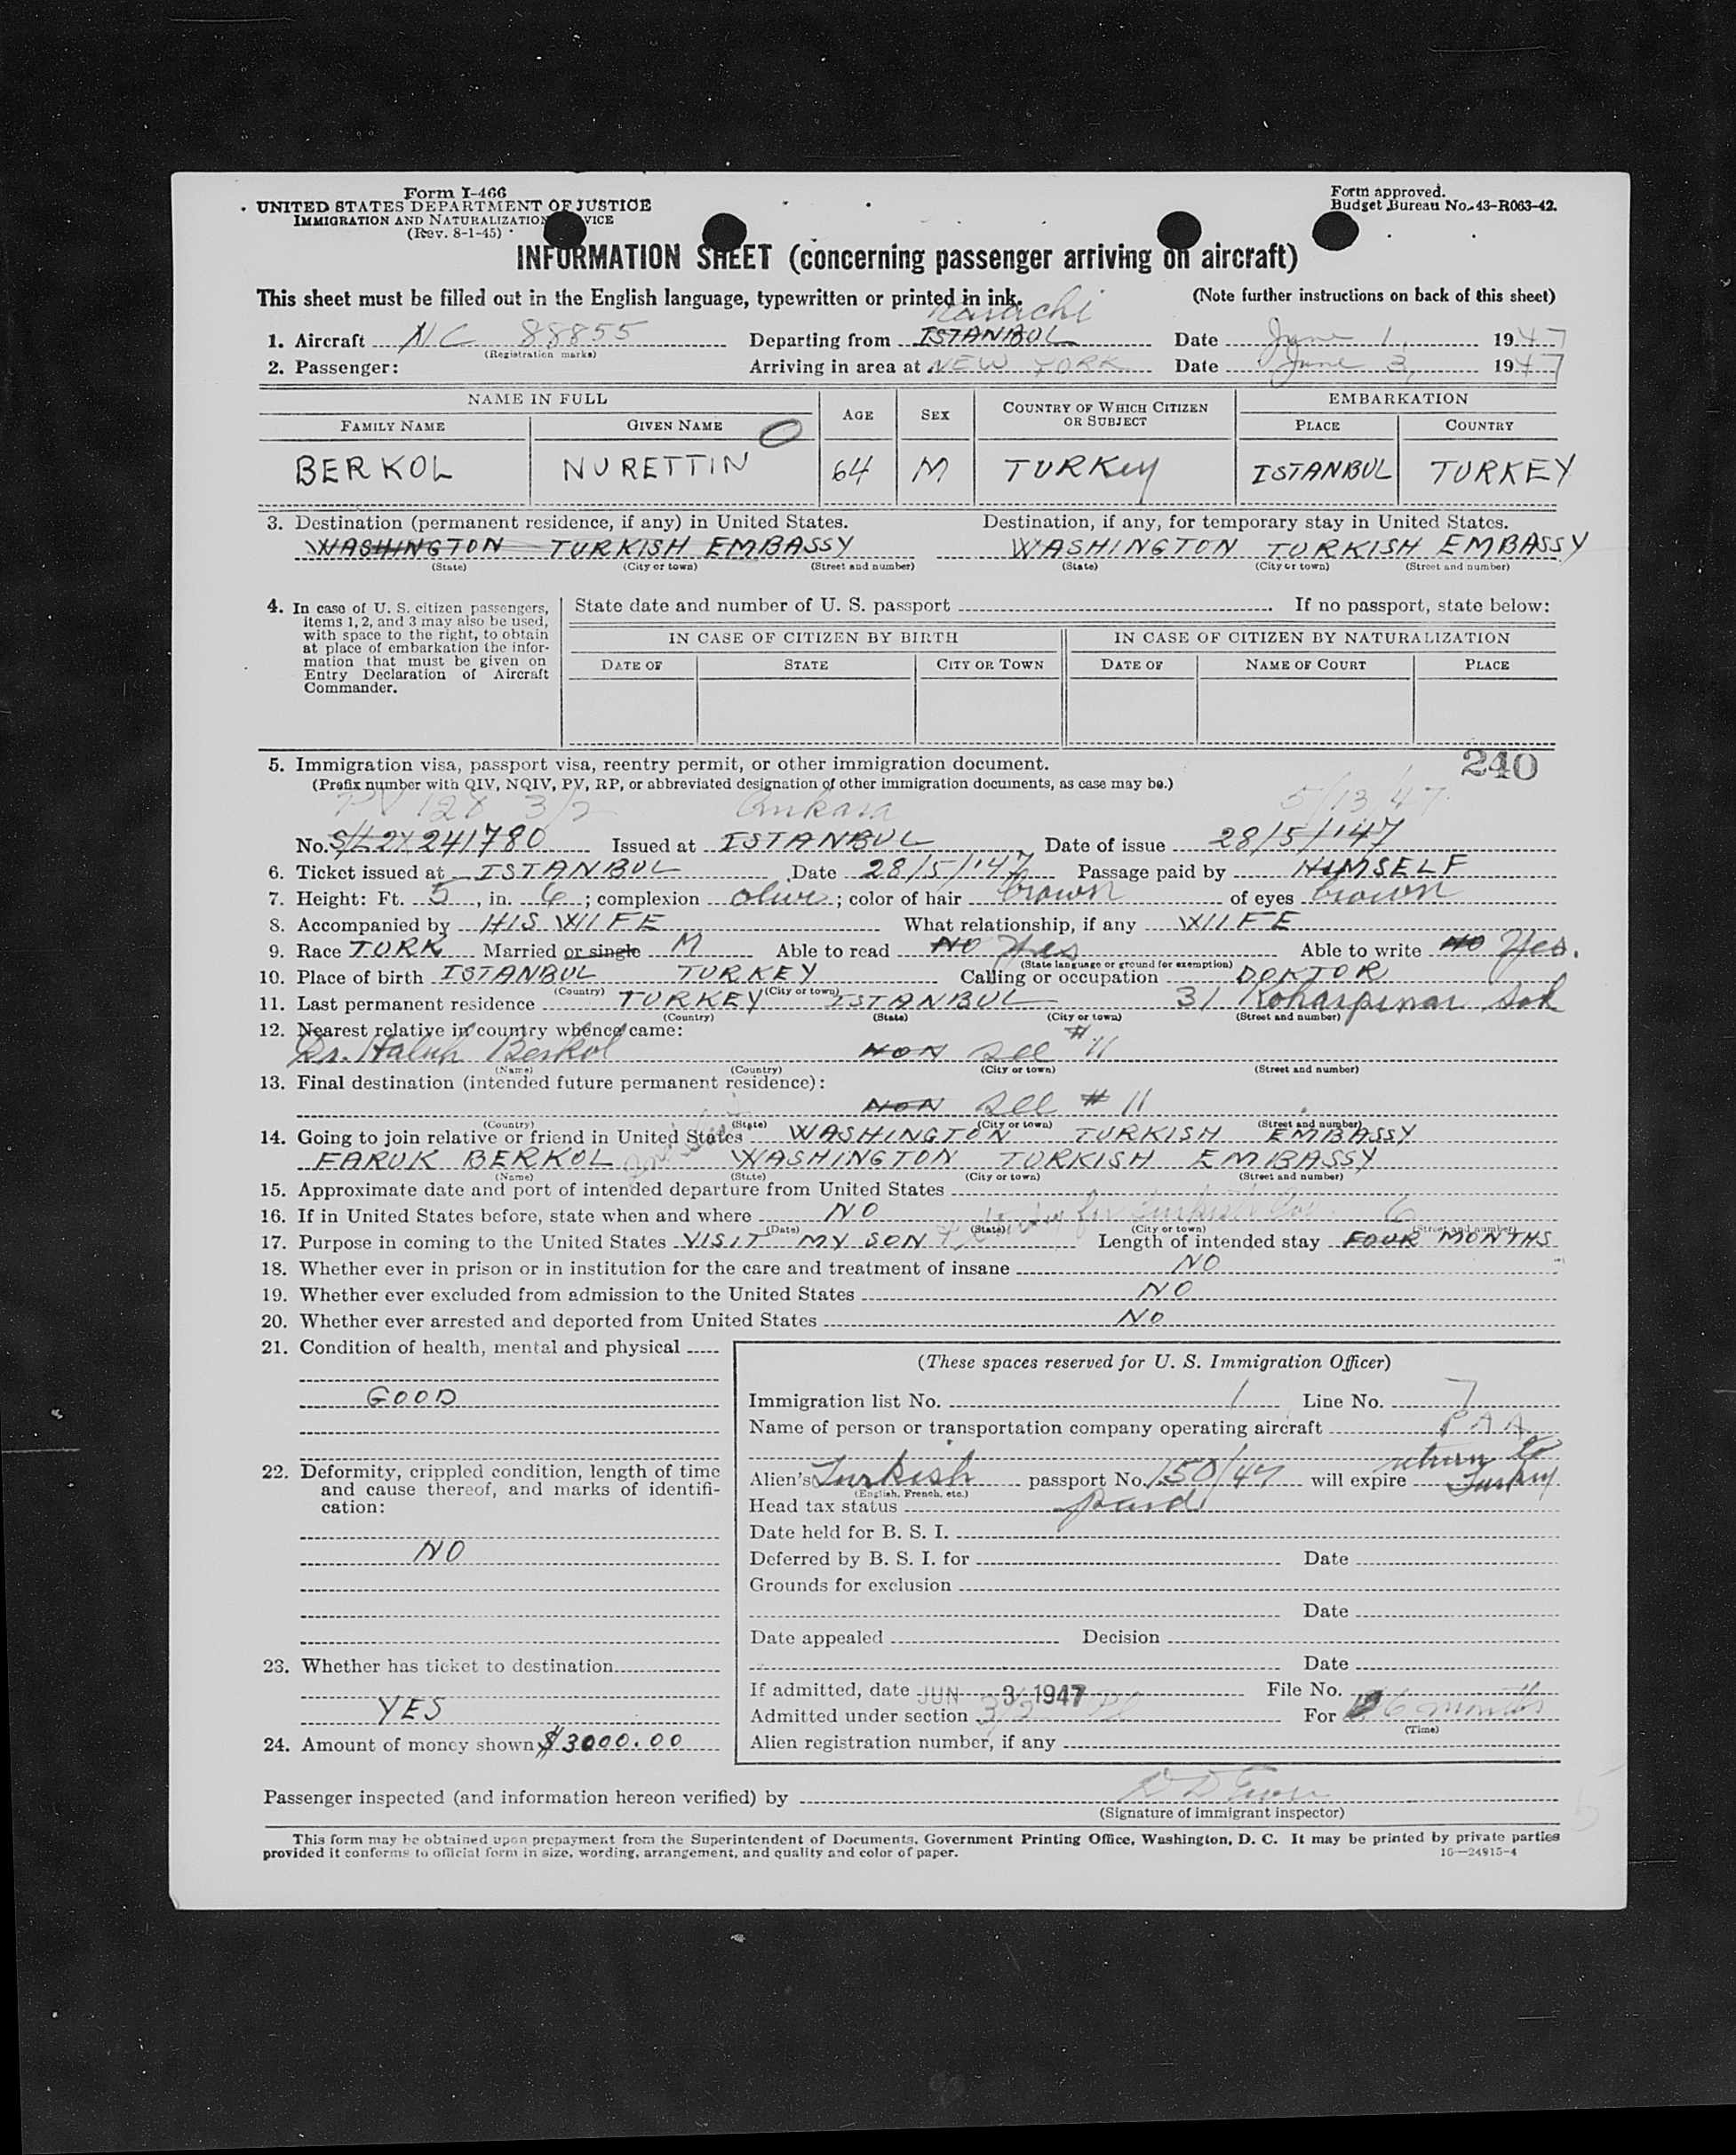 Form I-466
UNITED STATES DEPARTMENT OF JUSTICE
IMMIGRATION AND NATURALIZATION SERVICE
(Rev. 8-1-45)
Form approved.
Budget Bureau No. 43-R063-42.
INFORMATION SHEET (concerning passenger arriving on aircraft)
This sheet must be filled out in the English language, typewritten or printed in ink. (Note further instructions on back of this sheet)
Karachi
1. Aircraft NC 88855 Departing from ISTANBUL Date June 1, 1947
(Registration marks)
2. Passenger: Arriving in area at NEW YORK Date June 3, 1947
NAME IN FULL AGE SEX COUNTRY OF WHICH CITIZEN OR SUBJECT EMBARKATION
FAMILY NAME GIVEN NAME PLACE COUNTRY
BERKOL NURETTIN 64 M TURKEY ISTANBUL TURKEY
3. Destination (permanent residence, if any) in United States. Destination, if any, for temporary stay in United States.
WASHINGTON TURKISH EMBASSY WASHINGTON TURKISH EMBASSY
(State) (City or town) (Street and number) (State) (City or town) (Street and number)
4. In case of U. S. citizen passengers, items 1, 2, and 3 may also be used, with space to the right, to obtain at place of embarkation the information that must be given on Entry Declaration of Aircraft Commander.
State date and number of U. S. passport If no passport, state below:
IN CASE OF CITIZEN BY BIRTH IN CASE OF CITIZEN BY NATURALIZATION
DATE OF STATE CITY OR TOWN DATE OF NAME OF COURT PLACE
240
5. Immigration visa, passport visa, reentry permit, or other immigration document.
(Prefix number with QIV, NQIV, PV, RP, or abbreviated designation of other immigration documents, as case may be.)
PV 128 3/2 Ankara 5/13/47
No. 241780 Issued at ISTANBUL Date of issue 28/5/'47
6. Ticket issued at ISTANBUL Date 28/5/'47 Passage paid by HIMSELF
7. Height: Ft. 5, in. 6; complexion olive; color of hair brown of eyes brown
8. Accompanied by HIS WIIFE What relationship, if any WIIFE
9. Race TURK Married or single M Able to read NO Yes Able to write NO Yes.
(State language or ground for exemption)
10. Place of birth ISTANBUL TURKEY Calling or occupation DOKTOR
(Country) (City or town)
11. Last permanent residence TURKEY ISTANBUL 31 sok
(Country) (State) (City or town) (Street and number)
12. Nearest relative in country whence came:
Dr. Haluk Berkol NON See #11
(Name) (Country) (City or town) (Street and number)
13. Final destination (intended future permanent residence):
NON See #11
(Country) (State) (City or town) (Street and number)
14. Going to join relative or friend in United States WASHINGTON TURKISH EMBASSY
FARUK BERKOL WASHINGTON TURKISH EMBASSY
(Name) (State) (City or town) (Street and number)
15. Approximate date and port of intended departure from United States
16. If in United States before, state when and where NO
(Date) (State) (City or town) (Street and number)
17. Purpose in coming to the United States VISIT MY SON Length of intended stay 6 FOUR MONTHS
18. Whether ever in prison or in institution for the care and treatment of insane NO
19. Whether ever excluded from admission to the United States NO
20. Whether ever arrested and deported from United States NO
21. Condition of health, mental and physical
GOOD
22. Deformity, crippled condition, length of time and cause thereof, and marks of identification:
NO
23. Whether has ticket to destination
YES
24. Amount of money shown $3000.00
(These spaces reserved for U. S. Immigration Officer)
Immigration list No. 1 Line No. 7
Name of person or transportation company operating aircraft PAA
Alien's Turkish passport No. 150/47 will expire return to Turkey
(English, French, etc.)
Head tax status
Date held for B. S. I.
Deferred by B. S. I. for Date
Grounds for exclusion
Date
Date appealed Decision
Date
If admitted, date JUN 3 1947 File No.
Admitted under section 3/2 For 6 months
(Time)
Alien registration number, if any
Passenger inspected (and information hereon verified) by
(Signature of immigrant inspector)
This form may be obtained upon prepayment from the Superintendent of Documents, Government Printing Office, Washington, D. C. It may be printed by private parties
provided it conforms to official form in size, wording, arrangement, and quality and color of paper.
16—24915-4